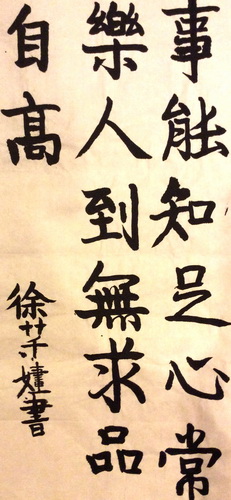 事能知足心常
樂人到無求品
自高
徐苹嬞書